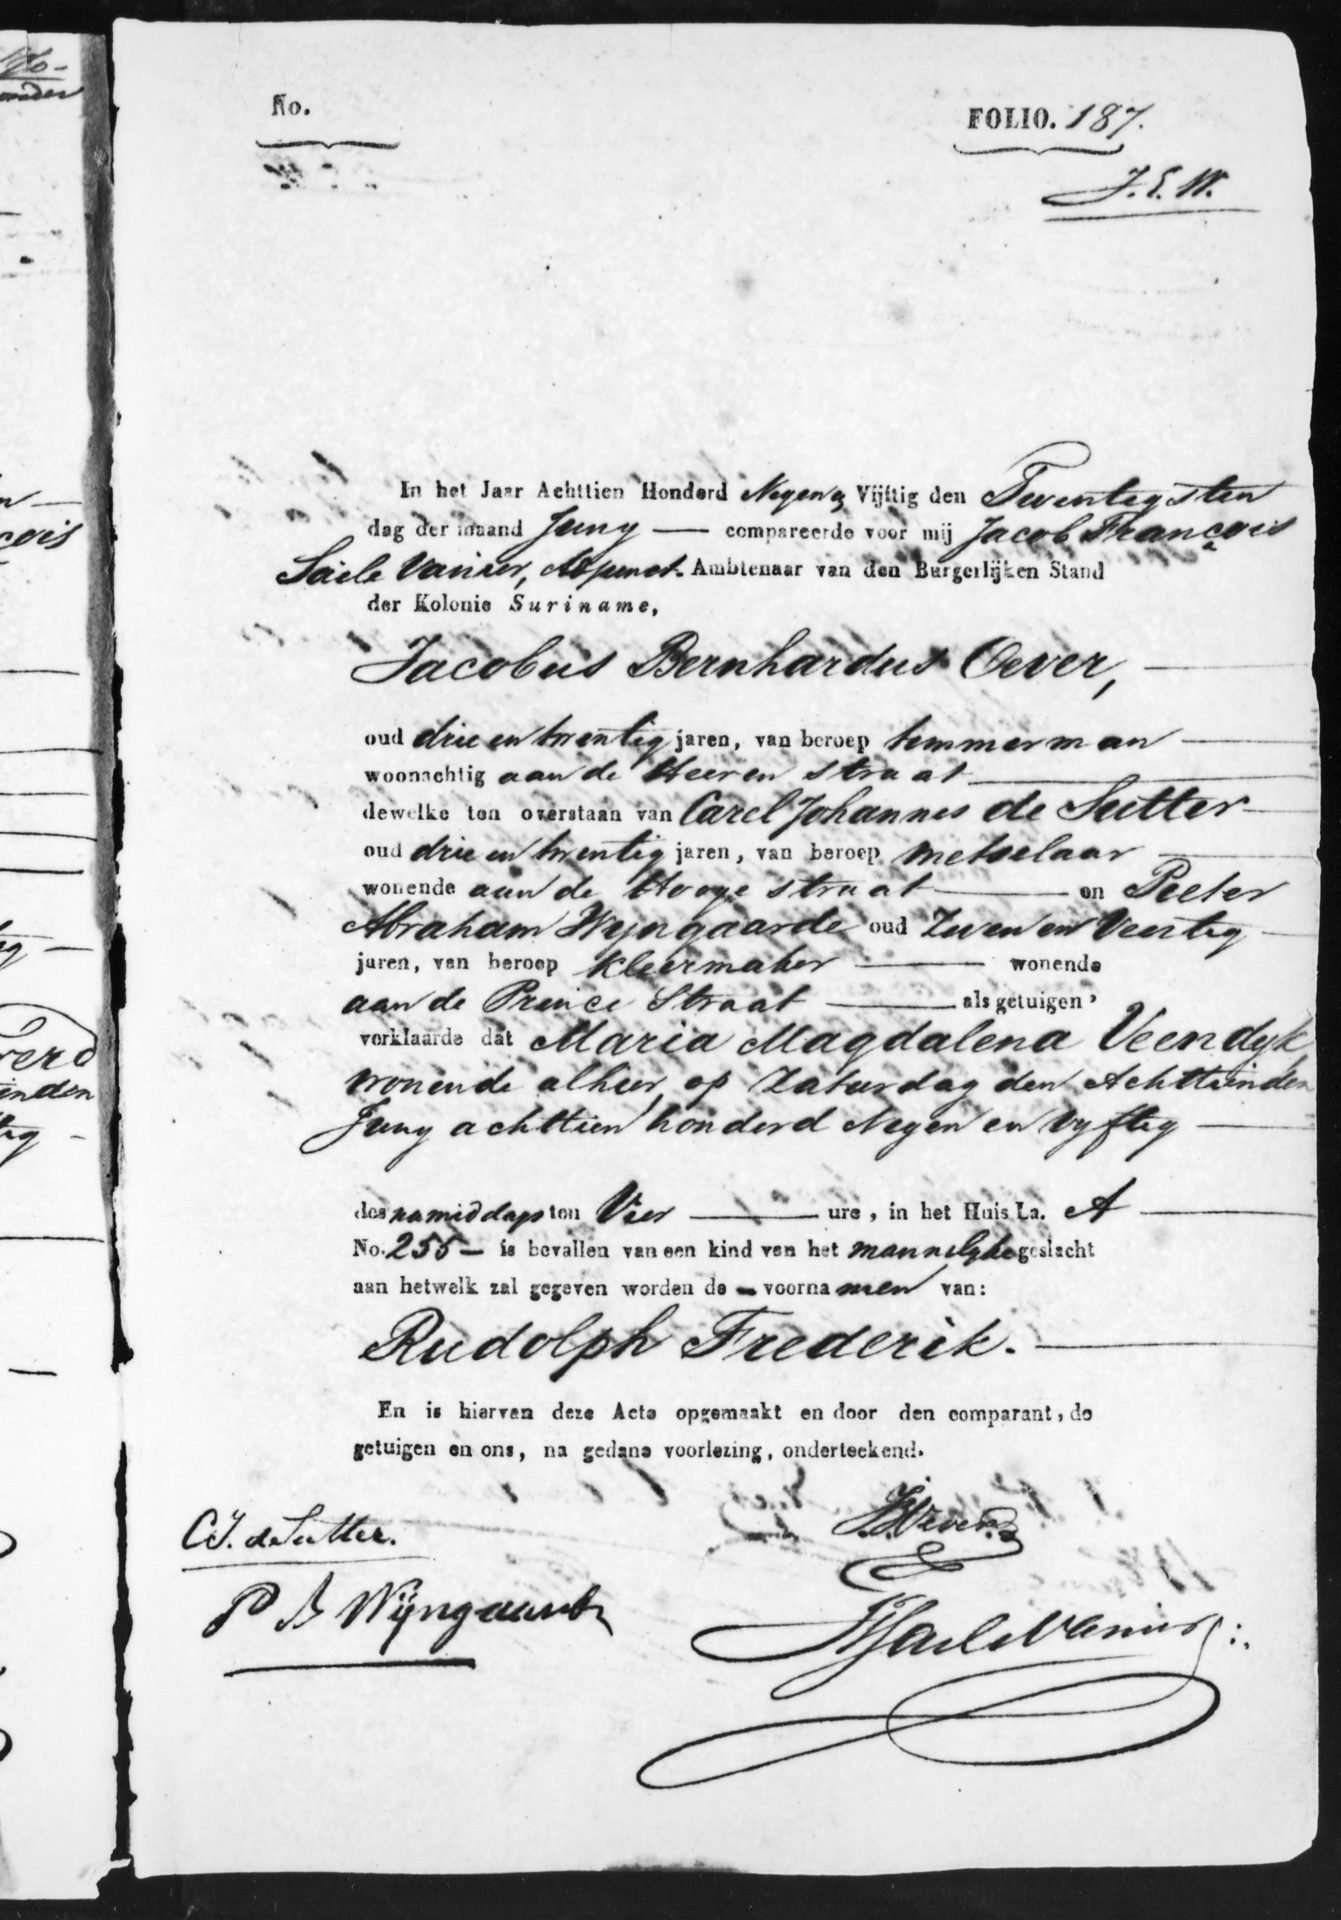 No.
FOLIO. 187.
J. E. W.
In het Jaar Achttien Honderd Negen & Vijftig den Twentigsten
dag der maand Juny — compareerde voor mij Jacob François
Saile Vanier, Adjunct. Ambtenaar van den Burgerlijken Stand
der Kolonie Suriname,
Jacobus Bernhardus Oever,
oud drie en twentig jaren, van beroep temmerman
woonachtig aan de Heeren straat
dewelke ten overstaan van Carel Johannes de Sutter
oud drie en twentig jaren, van beroep metselaar
wonende aan de Hooge straat — en Peeter
Abraham Wyngaarde oud Zeven en Veertig
jaren, van beroep Kleermaker — wonende
aan de Prince Straat — als getuigen,
verklaarde dat Maria Magdalena Veendyk
wonende alhier, op Zaturdag den Achttienden
Juny achttien honderd Negen en vyftig
des namiddags ten Vier — ure, in het Huis La. A
No. 255 — is bevallen van een kind van het mannelyke geslacht
aan hetwelk zal gegeven worden de — voornamen van:
Rudolph Frederik.
En is hiervan deze Acte opgemaakt en door den comparant, de
getuigen en ons, na gedane voorlezing, onderteekend.
C.J. de Sutter.
P A Wijngaarde